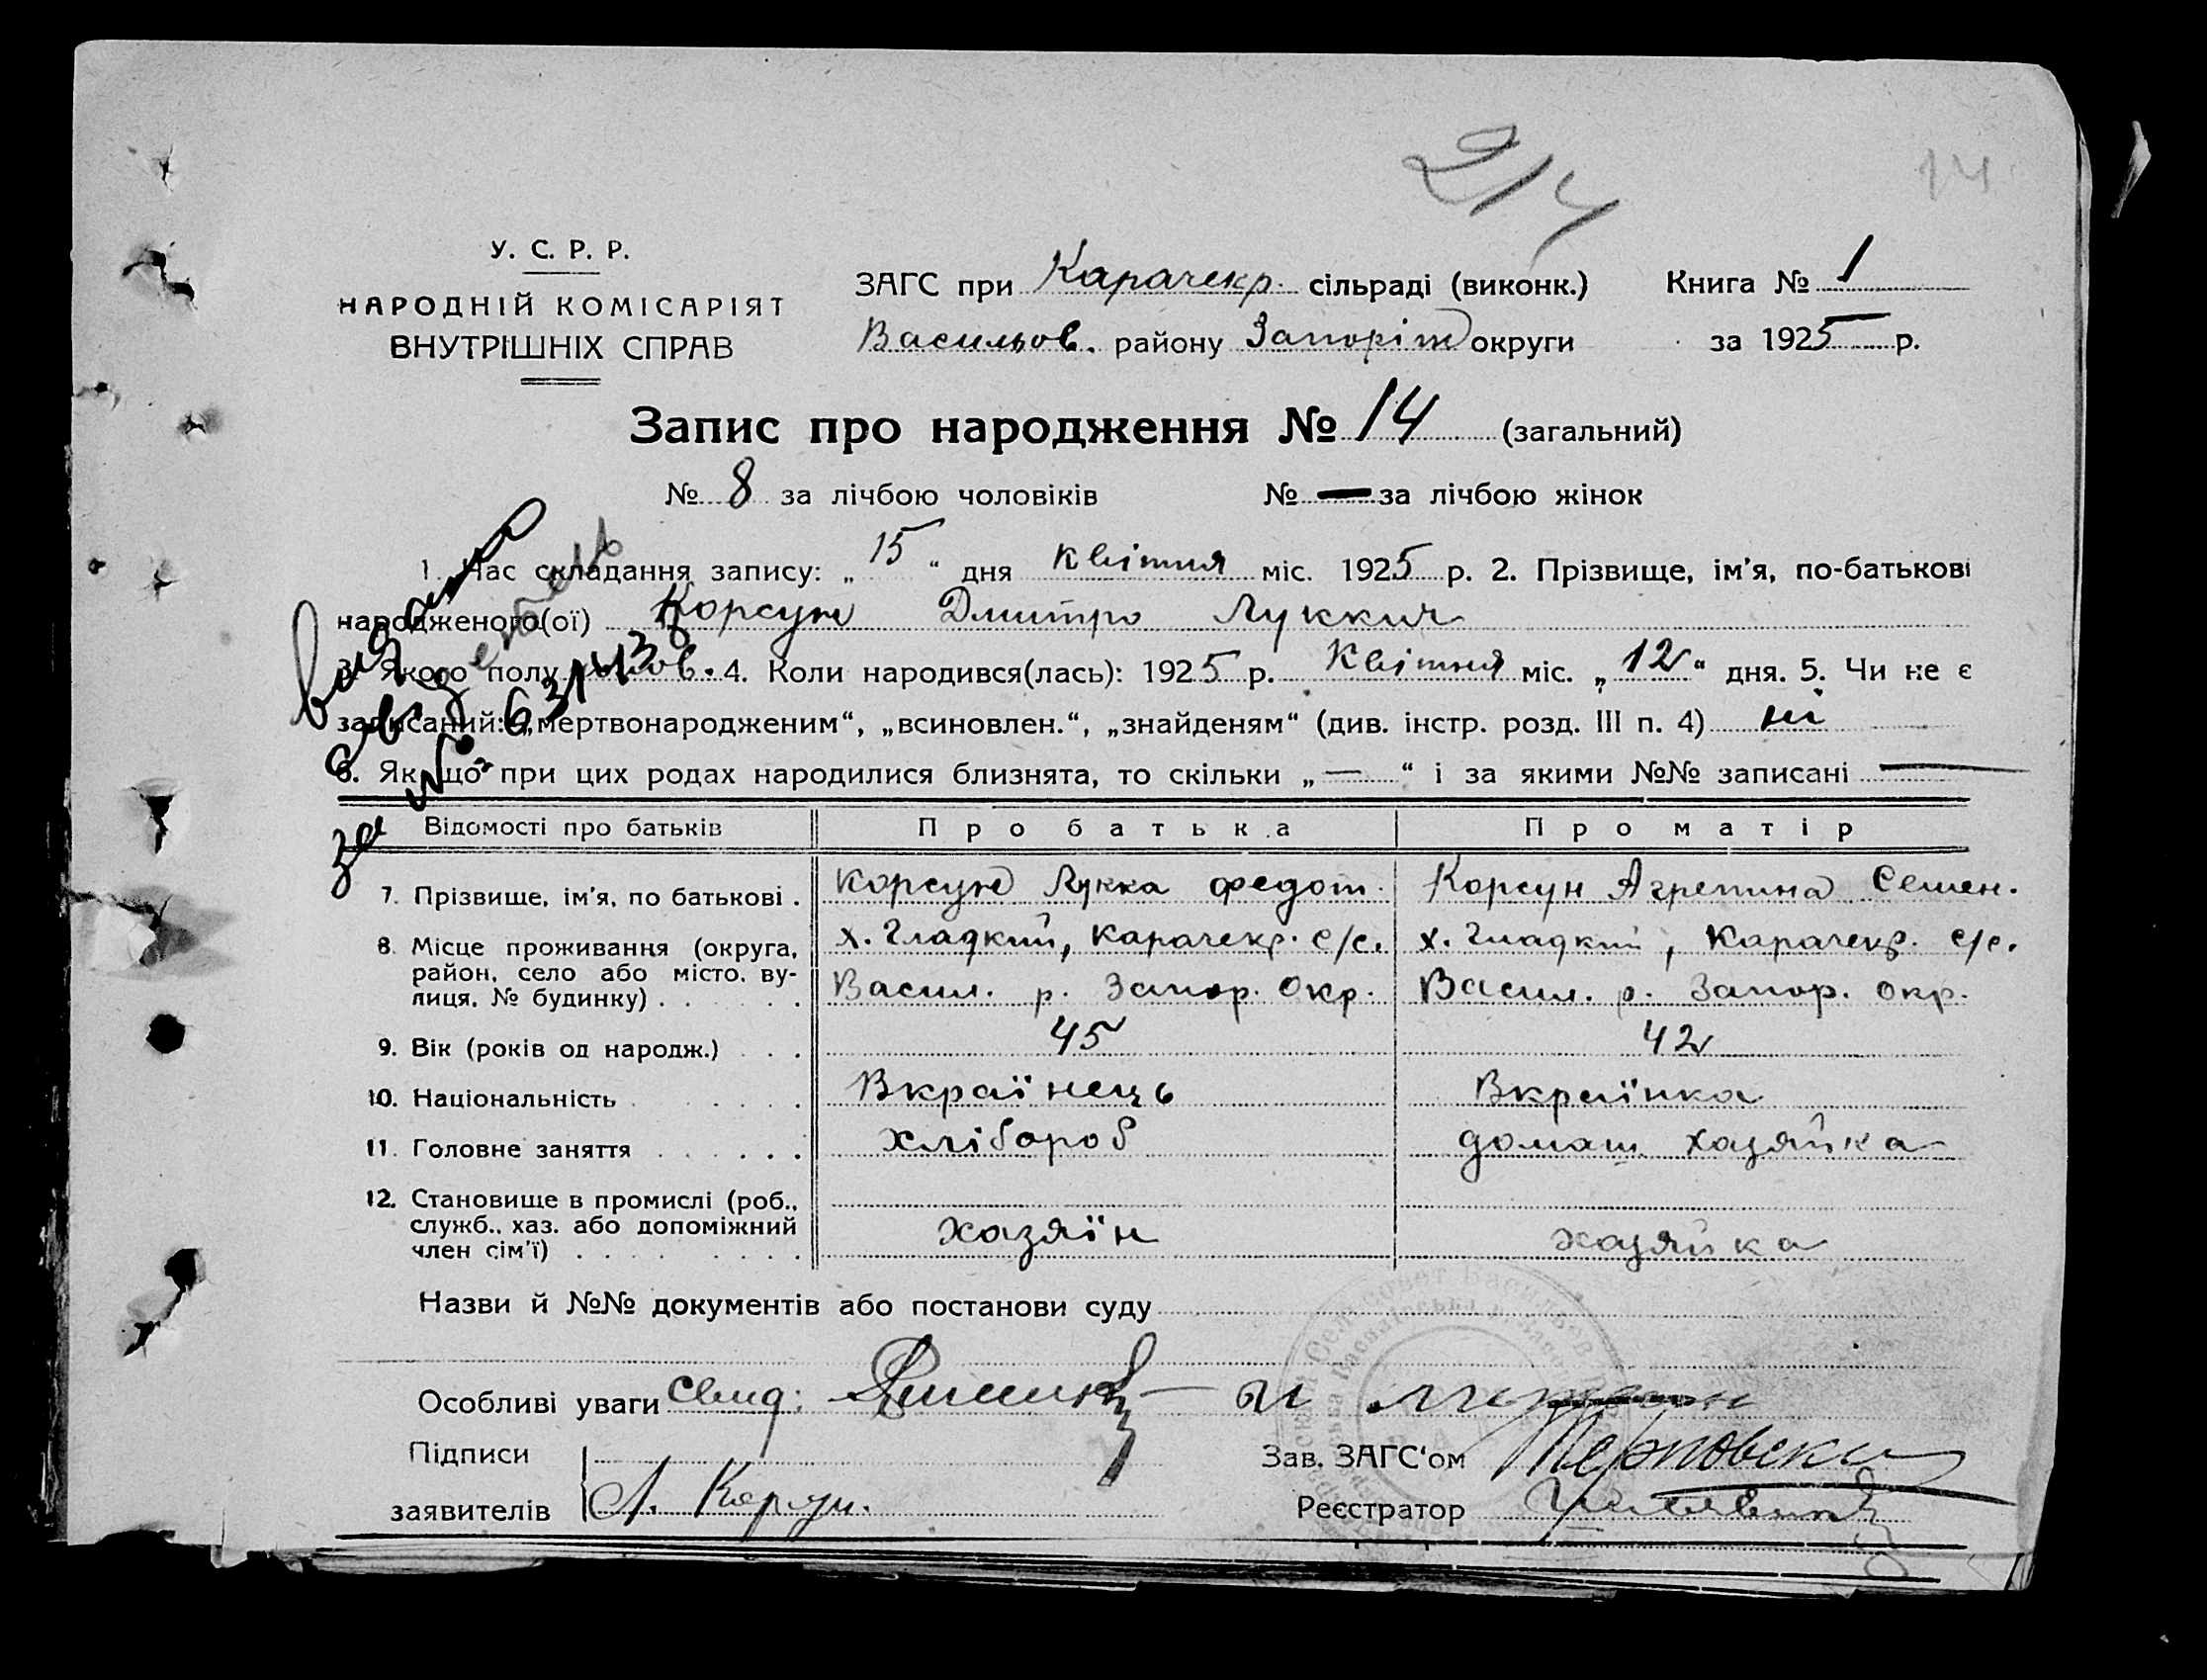 214
14
У. С. Р. Р.
НАРОДНІЙ КОМІСАРІЯТ
ВНУТРІШНІХ СПРАВ
ЗАГС при Карачекр. сільраді (виконк.) Книга № 1
Васильов. району Запоріж округи за 1925 р.
Запис про народження № 14 (загальний)
№ 8 за лічбою чоловіків № — за лічбою жінок
1. Час складання запису: „15“ дня Квітня міс. 1925 р. 2. Прізвище, ім'я, по-батькові
народженого(ої) Корсун Дмитро Луккич
3. Якого полу чолов. 4. Коли народився(лась): 1925 р. Квітня міс. „12“ дня. 5. Чи не є
записаний: „мертвонародженим“, „всиновлен.“, „знайденям“ (див. інстр. розд. III п. 4) ні
6. Якщо при цих родах народилися близнята, то скільки „—“ і за якими №№ записані —
за №
Відомості про батьків Про батька Про матір
7. Прізвище, ім'я, по батькові . Корсун Лукка Федот. Корсун Агрепина Семен.
8. Місце проживання (округа, район, село або місто, вулиця, № будинку) . . . х. Гладкий, Карачекр. с/с. х. Гладкий, Карачекр. с/с.
Васил. р. Запор. Окр. Васил. р. Запор. окр.
9. Вік (років од народж.) . . . 45 42
10. Національність . . . . . Вкраїнець Вкраїнка
11. Головне заняття . . . . . . хлібороб домаш хазяйка
12. Становище в промислі (роб., служб., хаз. або допоміжний член сім'ї) . . . . . . . хазяїн хазяйка
Назви й №№ документів або постанови суду
Особливі уваги Свид:
Підписи Зав. ЗАГС'ом
заявителів Л. Корсун. Реєстратор